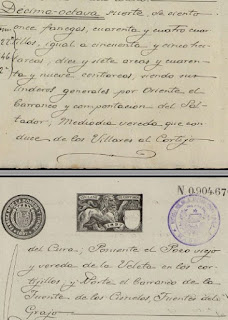 Décima-octava suerte de ciento
once fanegas, cuarenta y cuatro cuar
tillos, igual a cincuenta y cinco hec
tareas, diez y siete areas y cuaren
ta y nueve centiareas, siendo sus
linderos generales por Oriente el
Barranco y comportacion del Sal
tador, Mediodia vereda que con
duce de los Villares al Cortijo
N 0.904.67
del Cura; Poniente el Pozo viejo
y vereda de la Veleta en los cor
tijillos, y Norte el Barranco de la
Fuente de los Ciruelos, Fuentes del
Grajo